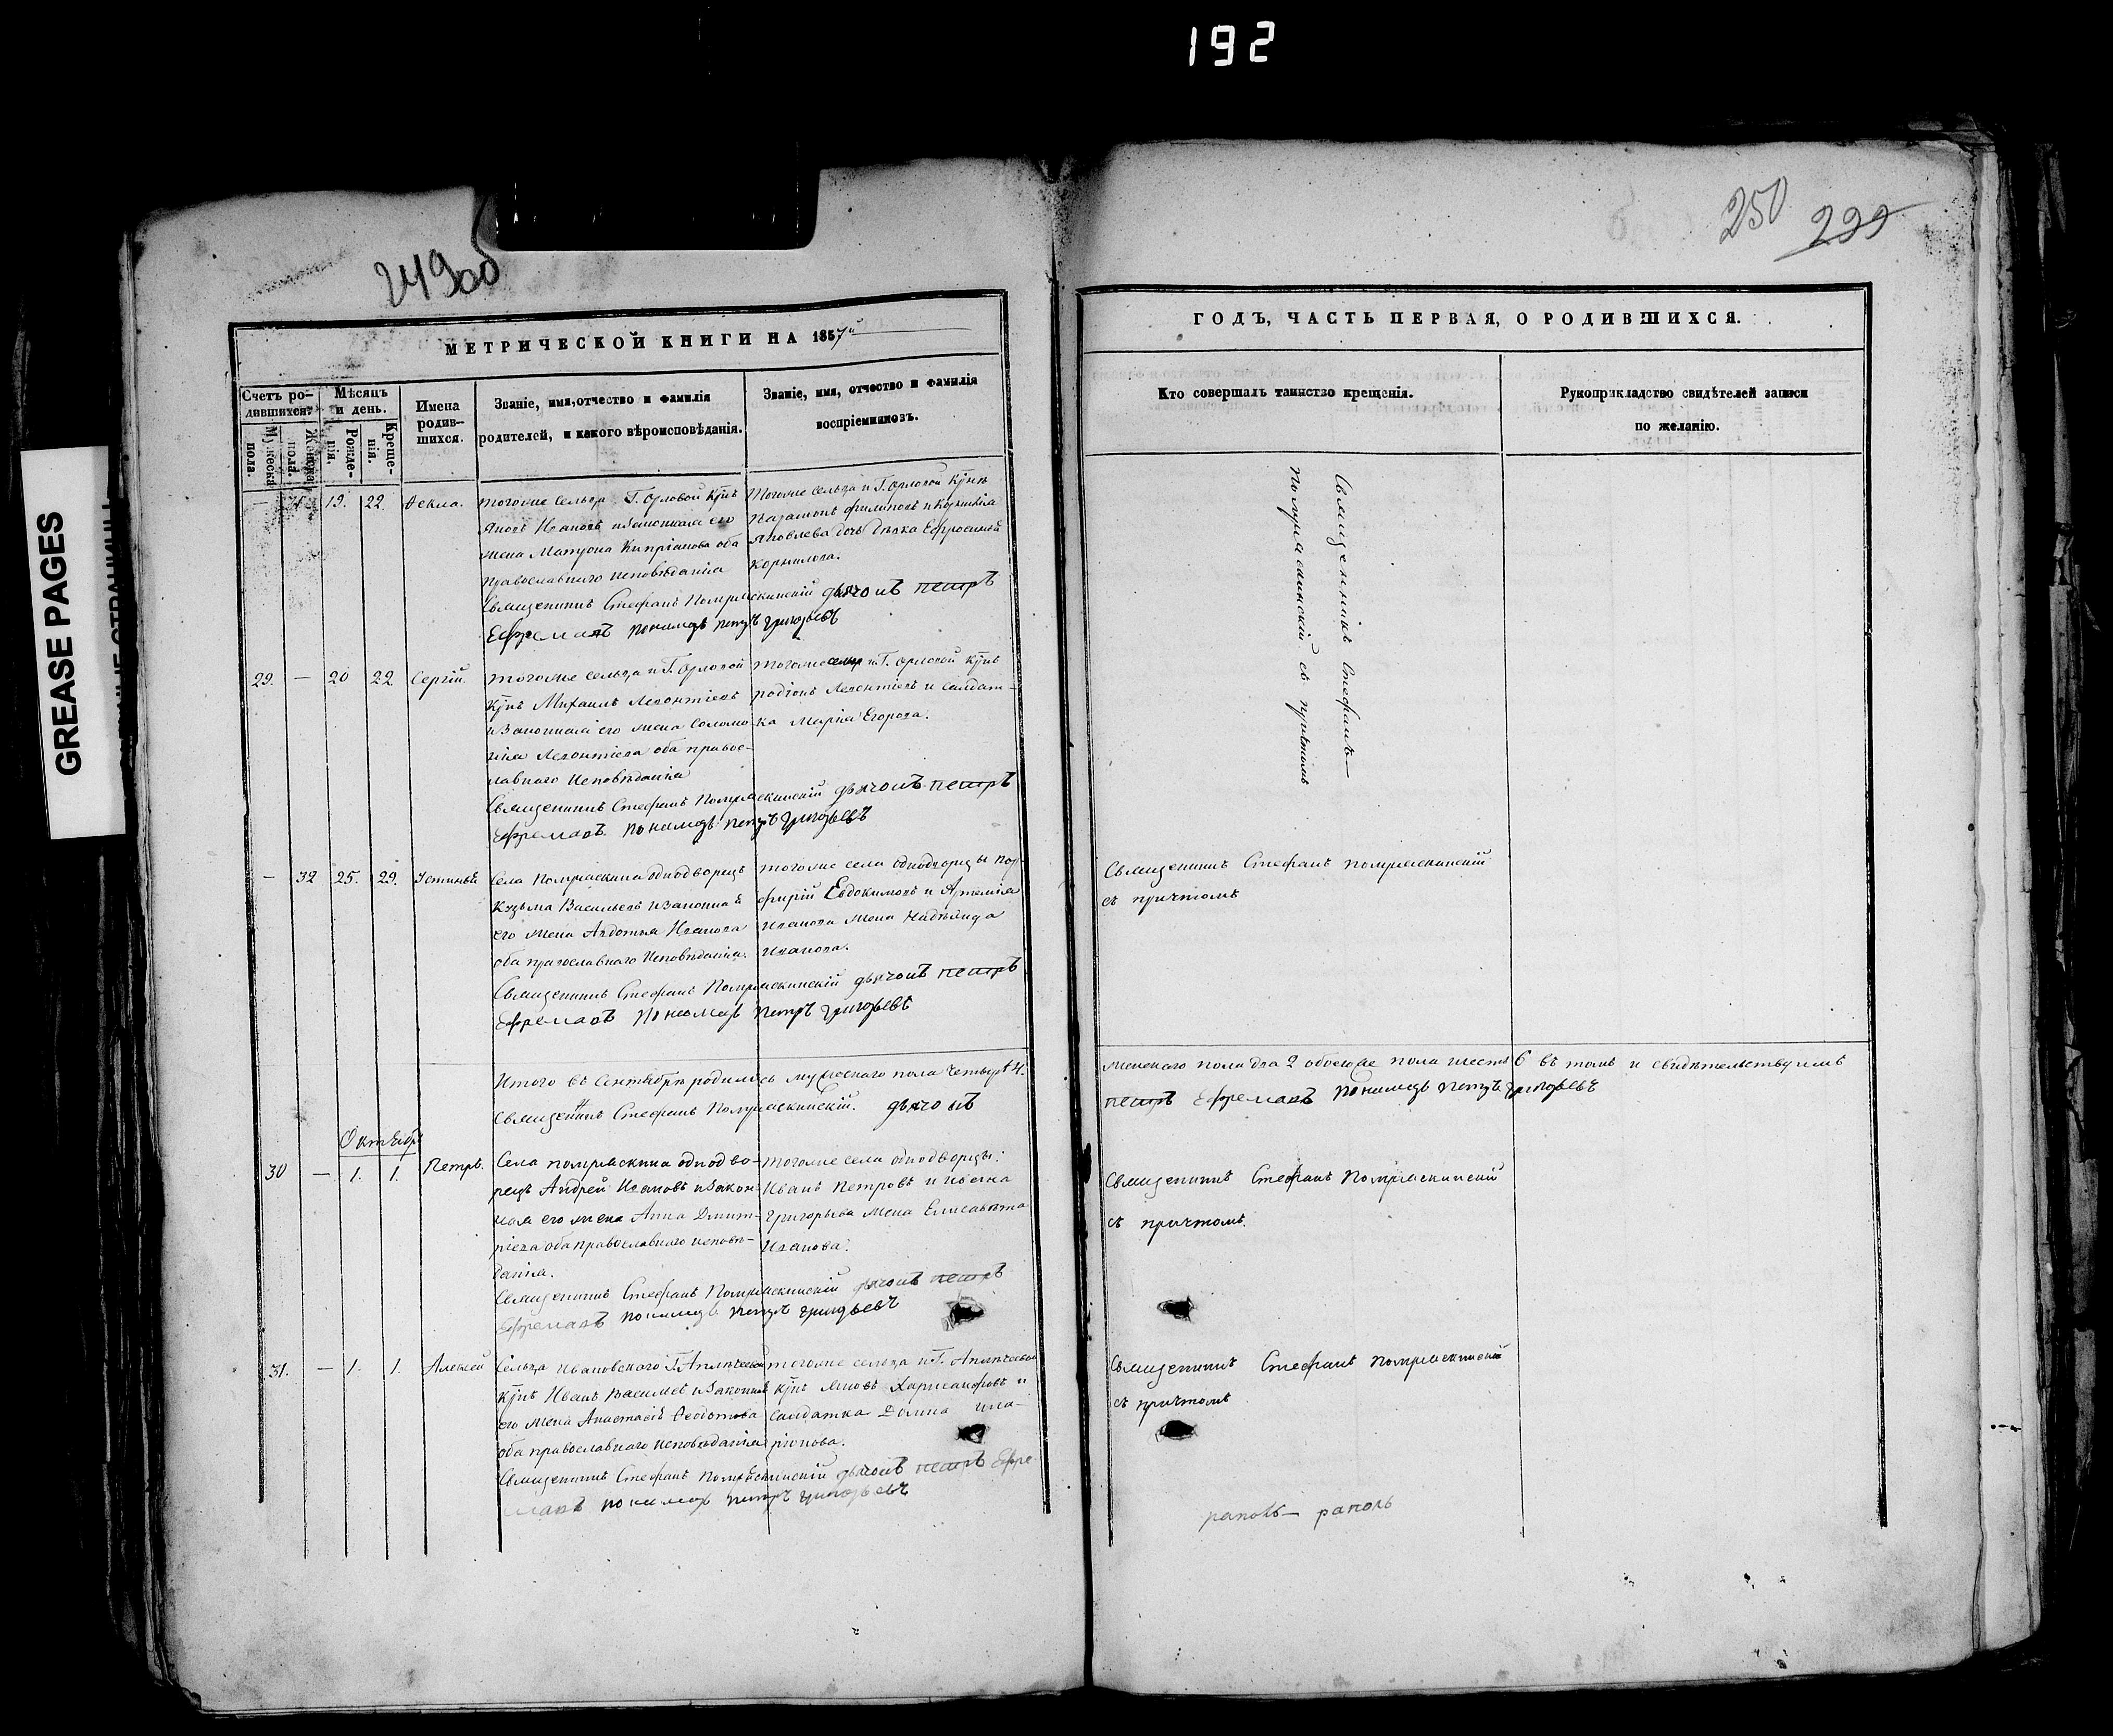 192
249об
250 299
GREASE PAGES
МЕТРИЧЕСКОЙ КНИГИ НА 1857й
ГОДЪ, ЧАСТЬ ПЕРВАЯ, О РОДИВШИХСЯ.
Счетъ родившихся.
Мужеска пола.
Женска пола.
Мѣсяцъ и день.
Рожденія.
Крещенія.
Имена родившихся.
Званіе, имя, отчество и фамилія
родителей, и какого вѣроисповѣданія.
Званіе, имя, отчество и фамилія
воспріемниковъ.
Кто совершалъ таинство крещенія.
Рукоприкладство свидѣтелей записи
по желанію.
— 19. 22. Ѳекла.
тогоже сельца Г. Орловой Кр҃нъ
Яковъ Ивановъ и законная его
жена Матрона Кипріанова оба
православнаго исповѣданія
Тогоже сельца и Г. Орловой Кр҃нъ
филиповъ и Корнилія
Яковлева дочь дѣвка Ефросинья
Корнилова.
Священникъ Стефанъ Потряскинскій дьячокъ петръ
Ефремовъ пономарь петръ григорьевъ
Священникъ Стефанъ
Потряскинскій съ причтомъ
29. — 20 22 Сергій.
тогоже сельца и Г. Орловой
Кр҃нъ Михаилъ Леонтіевъ
и законная его жена Соломо
нія Леонтіева оба правос-
лавнаго исповѣданія
Тогоже сельца и Г. Орловой Кр҃нъ
родіонъ Леонтіевъ и солдат-
ка Марія Егорова.
Священникъ Стефанъ Потряскинскій дьячокъ петръ
Ефремовъ. пономарь петръ григорьевъ
— 32 25. 29. Устинья
Села Потряскина однодворецъ
Кузьма Васильевъ и законная
его жена Авдотья Иванова
оба православнаго исповѣданія.
тогоже села однодворцы пор-
фирій Евдокимовъ и Артемія
Иванова жена Надѣжда
Иванова.
Священникъ Стефанъ Потряскинскій дьячокъ петръ
Ефремовъ пономарь петръ григорьевъ
Священникъ Стефанъ потряскинскій
съ причтомъ
Итого въ сентябрѣ родилось мужескаго пола четыре 4.
женскаго пола два 2 обоего же пола шесть 6 въ томъ и свидѣтельствуемъ
священникъ Стефанъ Потряскинскій. дьячокъ
петръ Ефремовъ пономарь петръ григорьевъ
Октябрь
30 — 1. 1. Петръ.
Села потряскина однодво-
рецъ Андрей Ивановъ и закон
ная его жена Анна Дмит-
ріева оба православнаго исповѣ-
данія.
тогоже села однодворцы:
Иванъ Петровъ и Ивана
Григорьева жена Елисавета
Иванова.
Священникъ Стефанъ Потряскинскій дьячокъ петръ
Ефремовъ пономарь петръ григорьевъ
Священникъ Стефанъ Потряскинскій
съ причтомъ.
31. — 1. 1. Алексей
Сельца Ивановскаго Г.
Кр҃нъ Иванъ Васильевъ и законная
его жена Анастасія Ѳеодотова
оба православнаго исповѣданія
тогоже сельца и Г.
Кр҃нъ Яковъ Харисанфовъ и
солдатка Домна Ила-
ріонова.
Священникъ Стефанъ Потряскинскій дьячокъ петръ Ефре
мовъ пономарь петръ григорьевъ
Священникъ Стефанъ потряскинскій
съ причтомъ